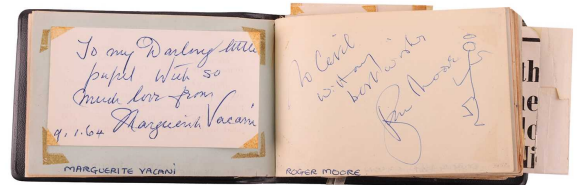 To my Darling little
pupil with so
much love from
Marguerite Vacani
9.1.64
MARGUERITE VACANI
To Cecil
with my
best wishes
Roger Moore
ROGER MOORE
th
ne